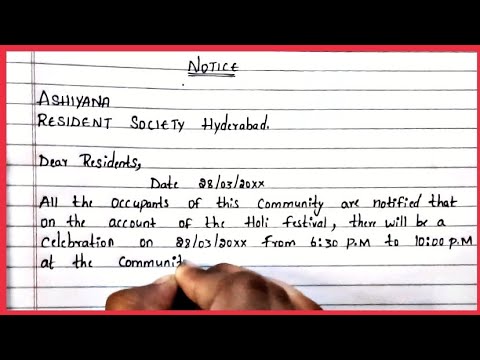 NOTICE
ASHIYANA
RESIDENT SOCIETY Hyderabad.
Dear Residents,
Date 28/03/20xx
All the occupants of this Community are notified that
on the account of the Holi festival, there will be a
Celebration on 28/03/20xx From 6:30 P.M to 10:00 P.M
at the Communit